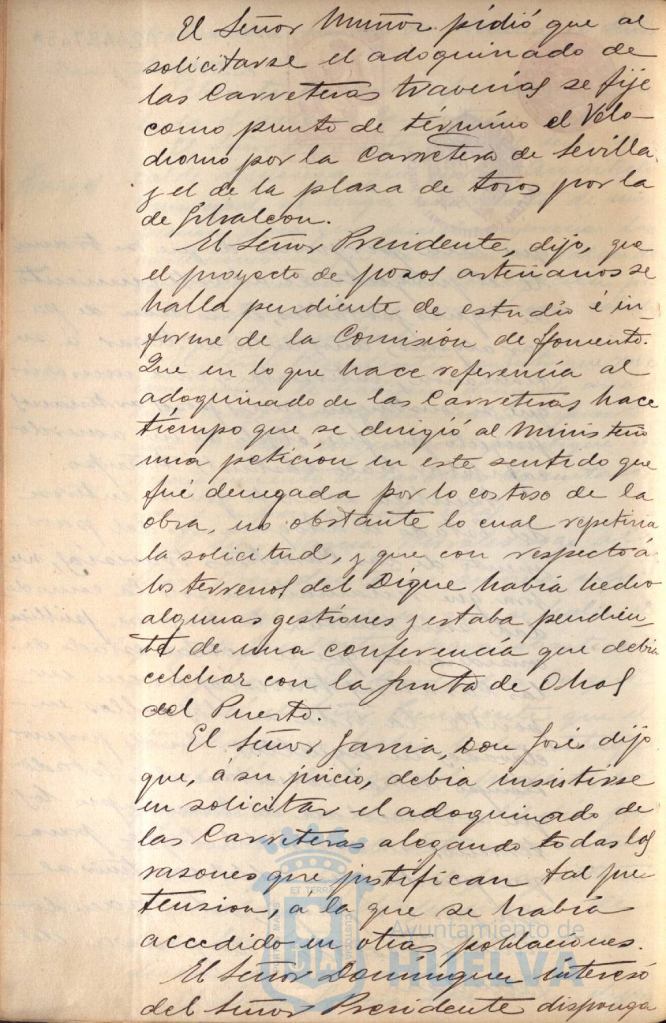 El Señor Muñoz pidió que al
solicitarse el adoquinado de
las Carreteras travesías se fije
como punto de término el Velo-
dromo por la Carretera de Sevilla
y el de la plaza de toros por la
de Gibraleon.
El Señor Presidente, dijo, que
el proyecto de pozos artesianos se
halla pendiente de estudio é in-
forme de la Comisión de fomento.
Que en lo que hace referencia al
adoquinado de las Carreteras hace
tiempo que se dirigió al Ministerio
una petición en este sentido que
fué denegada por lo costoso de la
obra, no obstante lo cual repetiria
la solicitud, y que con respecto á
los terrenos del Dique había hecho
algunas gestiones y estaba pendien-
te de una conferencia que debia
celebrar con la Junta de Obras
del Puerto.
El Señor Garcia, Don José dijo
que, á su juicio, debia insistirse
en solicitar el adoquinado de
las Carreteras alegando todas las
razones que justifican tal pre
tension, a la que se había
accedido en otras poblaciones.
El Señor Dominguez interesó
del Señor Presidente disponga
Ayuntamiento de
HUELVA